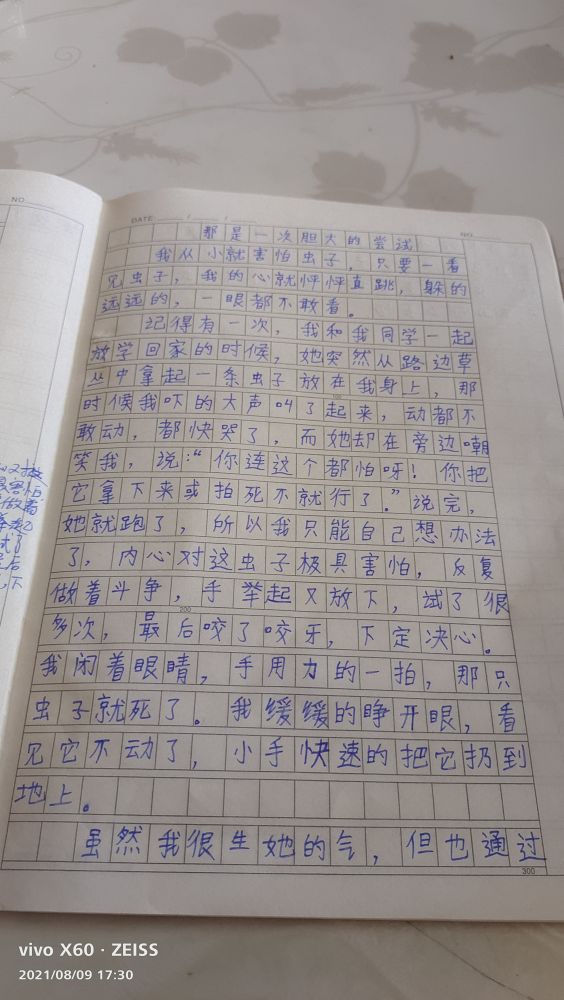 NO
DATE
NO
那是一次胆大的尝试
我从小就害怕虫子，只要一看
见虫子，我的心就怦怦直跳，躲的
远远的，一眼都不敢看。
记得有一次，我和我同学一起
放学回家的时候，她突然从路边草
丛中拿起一条虫子放在我身上，那
时候我吓的大声叫了起来，动都不
100
敢动，都快哭了，而她却在旁边嘲
笑我，说：“你连这个都怕呀！你把
它拿下来或拍死不就行了。”说完，
她就跑了，所以我只能自己想办法
了，内心对这虫子极具害怕，反复
做着斗争，手举起又放下，试了很
200
多次，最后咬了咬牙，下定决心。
我闭着眼睛，手用力的一拍，那只
虫子就死了。我缓缓的睁开眼，看
见它不动了，小手快速的把它扔到
地上。
虽然我很生她的气，但也通过
300
vivo X60 · ZEISS
2021/08/09 17:30